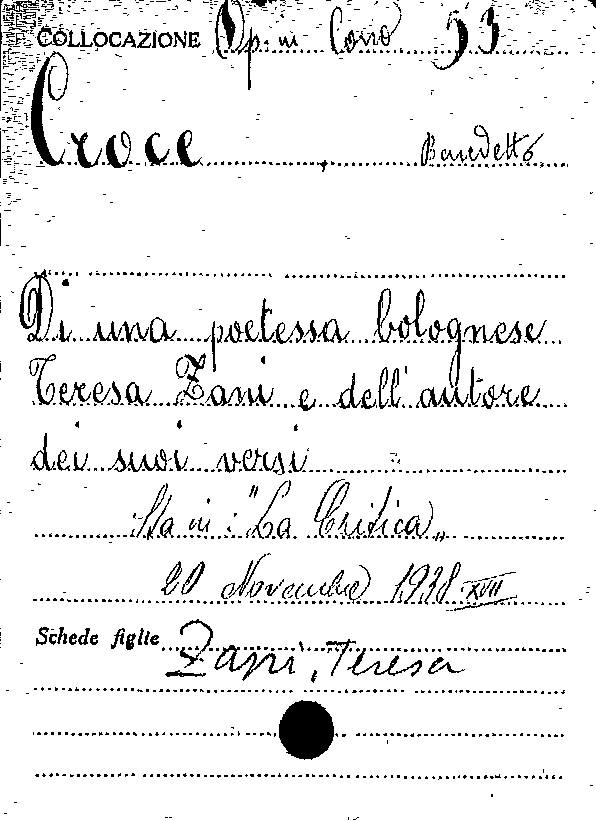 COLLOCAZIONE Op. in Corso 53
Croce, Benedetto
Di una poetessa bolognese
Teresa Zani e dell'autore
dei suoi versi
Sta in: "La Critica„
20 Novembre 1938 XVII
Schede figlie Zani, Teresa